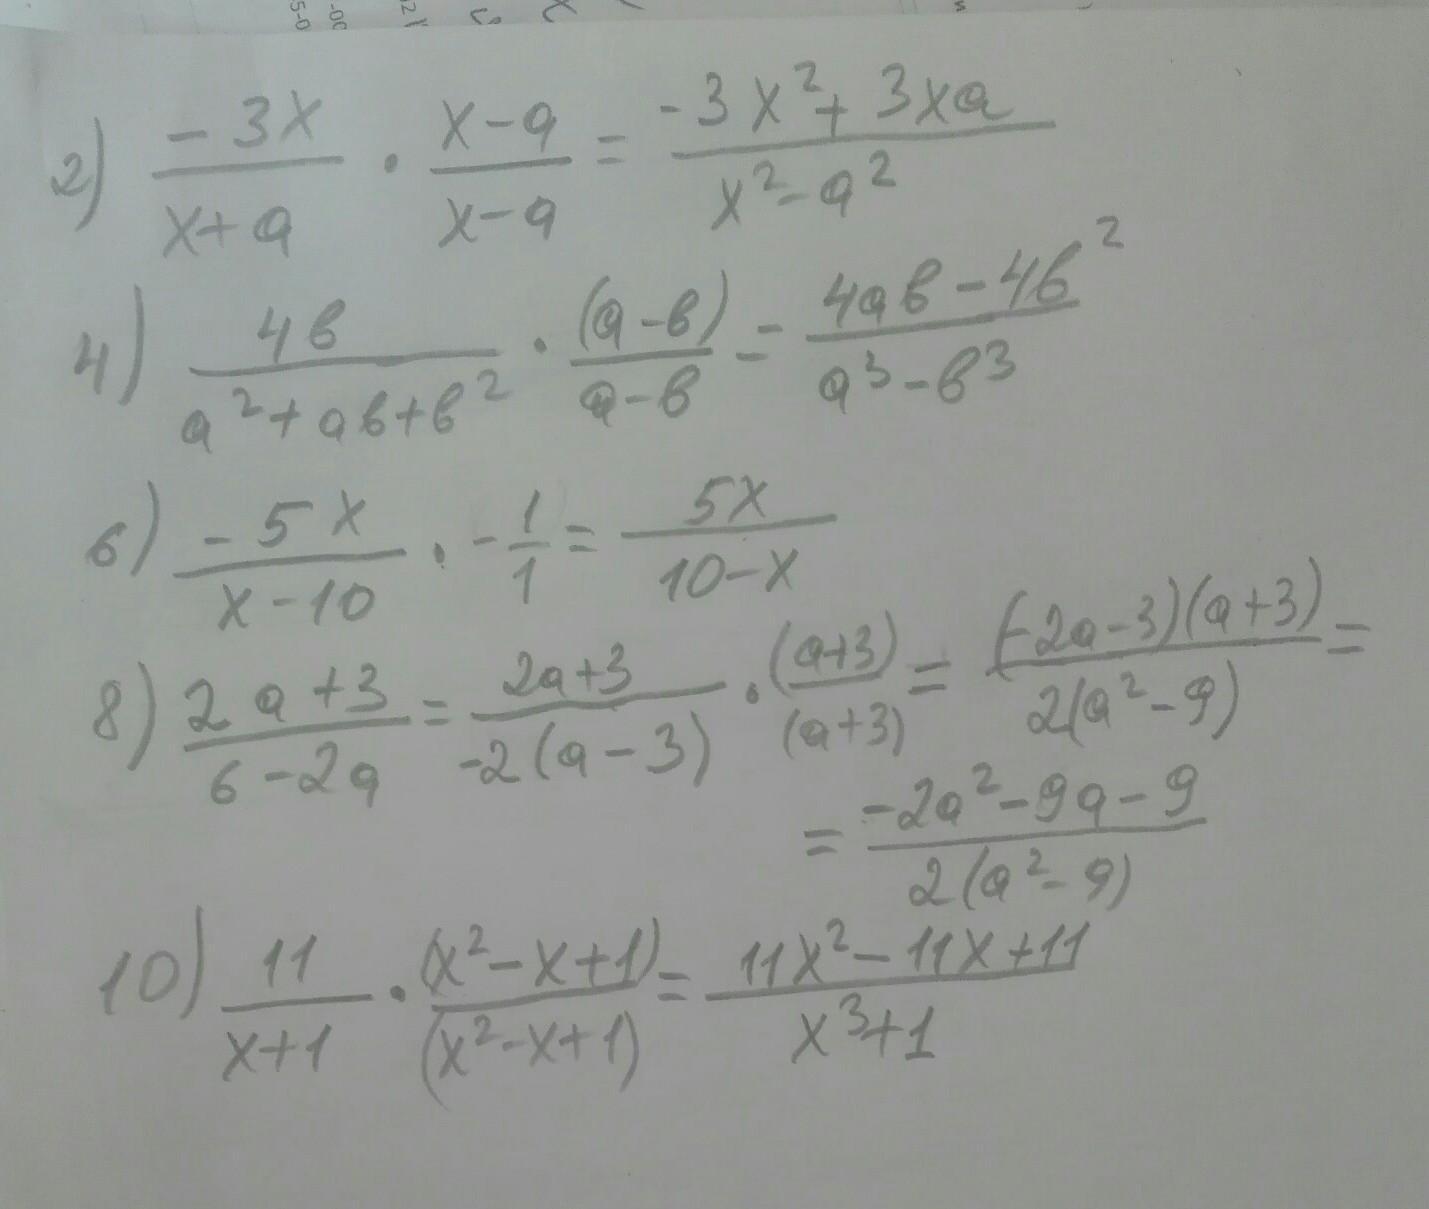 2) -3x/(x+a) · (x-a)/(x-a) = (-3x²+3xa)/(x²-a²)
4) 4в/(a²+aв+в²) · (a-в)/(a-в) = (4aв-4в²)/(a³-в³)
6) -5x/(x-10) · -1/1 = 5x/(10-x)
8) (2a+3)/(6-2a) = (2a+3)/(-2(a-3)) · (a+3)/(a+3) = (-2a-3)(a+3)/(2(a²-9)) =
= (-2a²-9a-9)/(2(a²-9))
10) 11/(x+1) · (x²-x+1)/(x²-x+1) = (11x²-11x+11)/(x³+1)